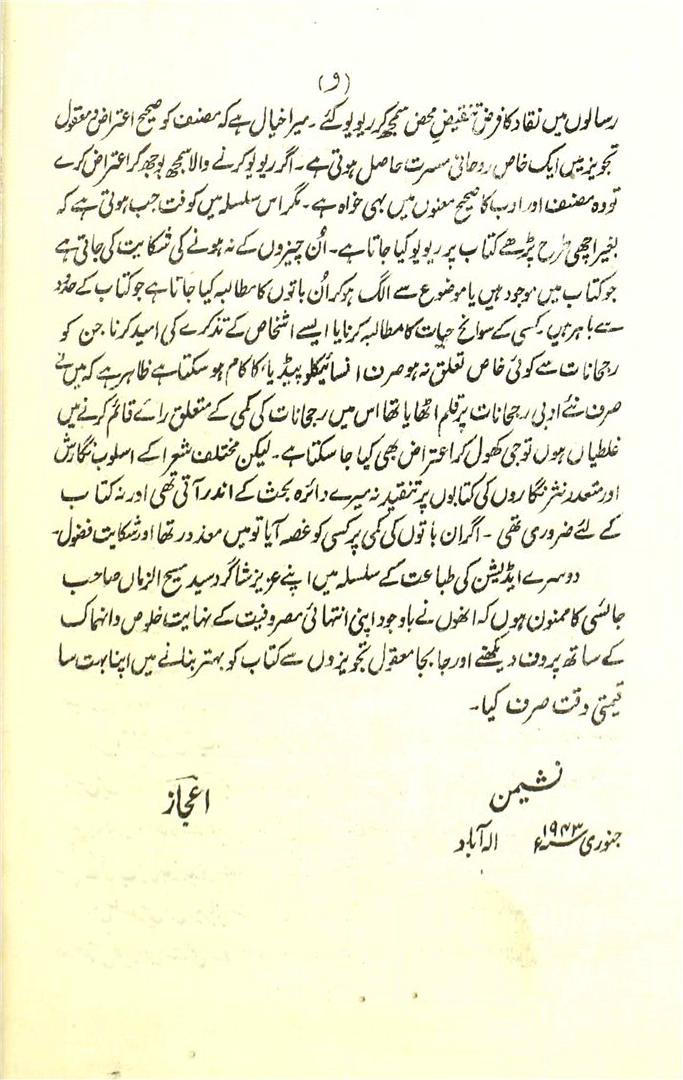 (و)
رسالوں میں نقاد کا فرض تنقیضِ محض سمجھ کر ریویو کئے ۔ میرا خیال ہے کہ مصنف کو صحیح اعتراض و معقول
تجویز میں ایک خاص روحانی مسرت حاصل ہوتی ہے ۔ اگر ریویو کرنے والا سمجھ بوجھ کر اعتراض کرے
تو وہ مصنف اور ادب کا صحیح معنوں میں بہی خواہ ہے ۔ مگر اس سلسلہ میں کوفت جب ہوتی ہے کہ
بغیر اچھی طرح پڑھے کتاب پر ریویو کیا جاتا ہے ۔ اُن چیزوں کے نہ ہونے کی شکایت کی جاتی ہے
جو کتاب میں موجود ہیں یا موضوع سے الگ ہو کر اُن باتوں کا مطالبہ کیا جاتا ہے جو کتاب کے حدود
سے باہر ہیں ۔ کسی کے سوانح حیات کا مطالبہ کرنا یا ایسے اشخاص کے تذکرے کی امید کرنا ۔ جن کو
رجحانات سے کوئی خاص تعلق نہ ہو صرف انسائیکلوپیڈیا، کا کام ہو سکتا ہے ظاہر ہے کہ میں نے
صرف نئے ادبی رجحانات پر قلم اٹھایا تھا اس میں رجحانات کی کمی کے متعلق رائے قائم کرنے میں
غلطیاں ہوں تو جی کھول کر اعتراض بھی کیا جا سکتا ہے ۔ لیکن مختلف شعرا کے اسلوب نگارش
اور متعدد نثر نگاروں کی کتابوں پر تنقید نہ میرے دائرہ بحث کے اندر آتی تھی اور نہ کتاب
کے لئے ضروری تھی ۔ اگر ان باتوں کی کمی پر کسی کو غصہ آیا تو میں معذور تھا اور شکایت فضول ۔
دوسرے ایڈیشن کی طباعت کے سلسلہ میں اپنے عزیز شاگرد سید مسیح الزماں صاحب
جائسی کا ممنون ہوں کہ انھوں نے باوجود اپنی انتہائی مصروفیت کے نہایت خلوص و انہماک
کے ساتھ پروف دیکھنے اور جا بجا معقول تجویزوں سے کتاب کو بہتر بنانے میں اپنا بہت سا
قیمتی وقت صرف کیا ۔
نشیمن
اعجاز
جنوری ۱۹۴۳ء الہ آباد